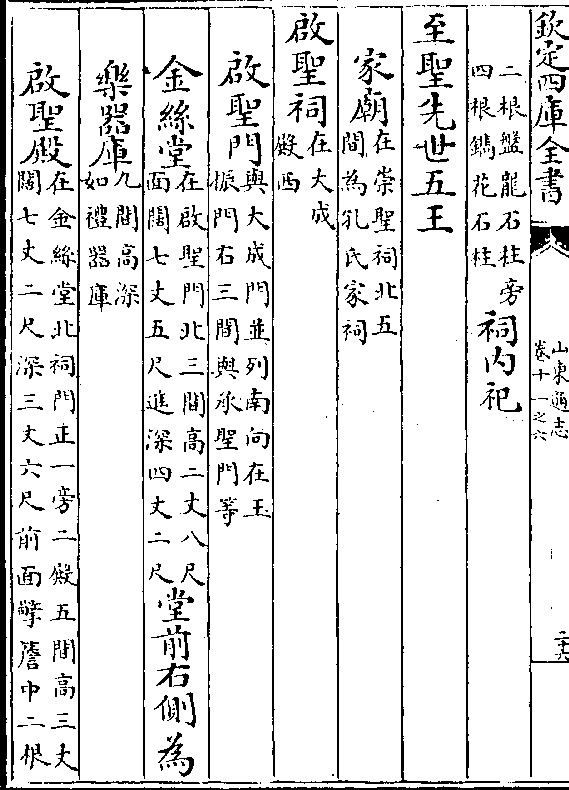 欽定四庫全書
山東通志
卷十一之六
二十六
二根盤龍石柱旁
四根鐫花石柱
祠内祀
至聖先世五王
家廟
在崇聖祠北五
間為孔氏家祠
啟聖祠
在大成
殿西
啟聖門
與大成門並列南向在玉
振門右三間與承聖門等
金絲堂
在啟聖門北三間高二丈八尺
面闊七丈五尺進深四丈二尺
堂前右側為
樂器庫
九間高深
如禮器庫
啟聖殿
在金絲堂北祠門正一旁二殿五間高三丈
闊七丈二尺深三丈六尺前面擎簷中二根